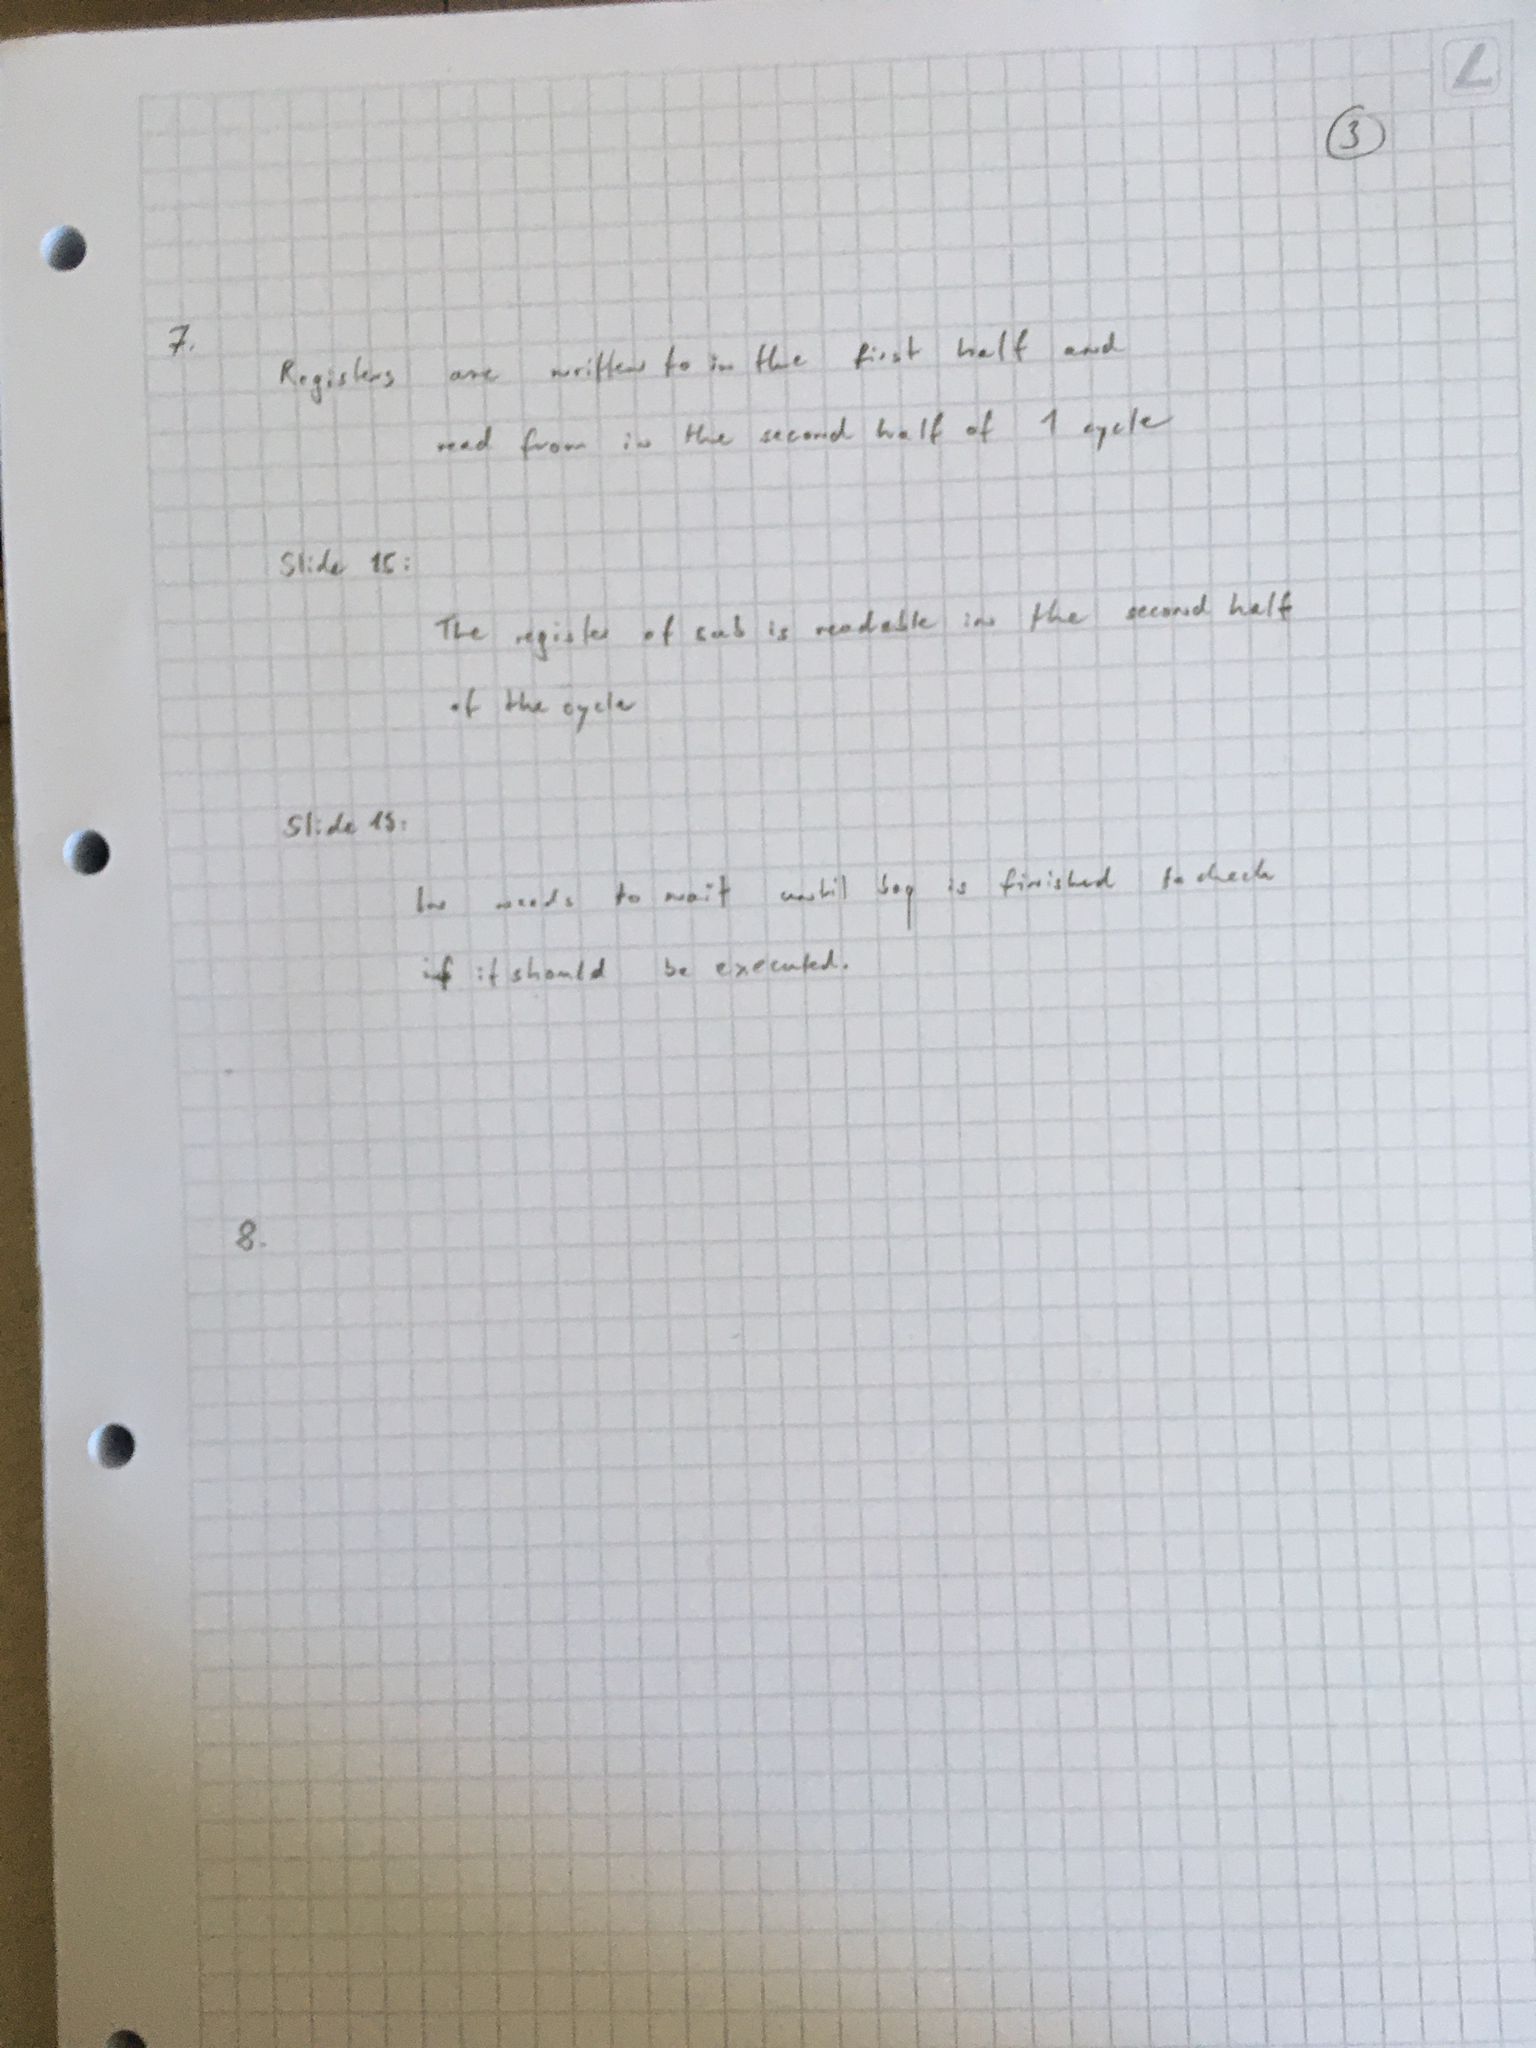 3
7.
Registers are written to in the first half and
read from in the second half of 1 cycle
Slide 15:
The register of sub is readable in the second half
of the cycle
Slide 19:
lw needs to wait until beq is finished to check
if it should be executed.
8.